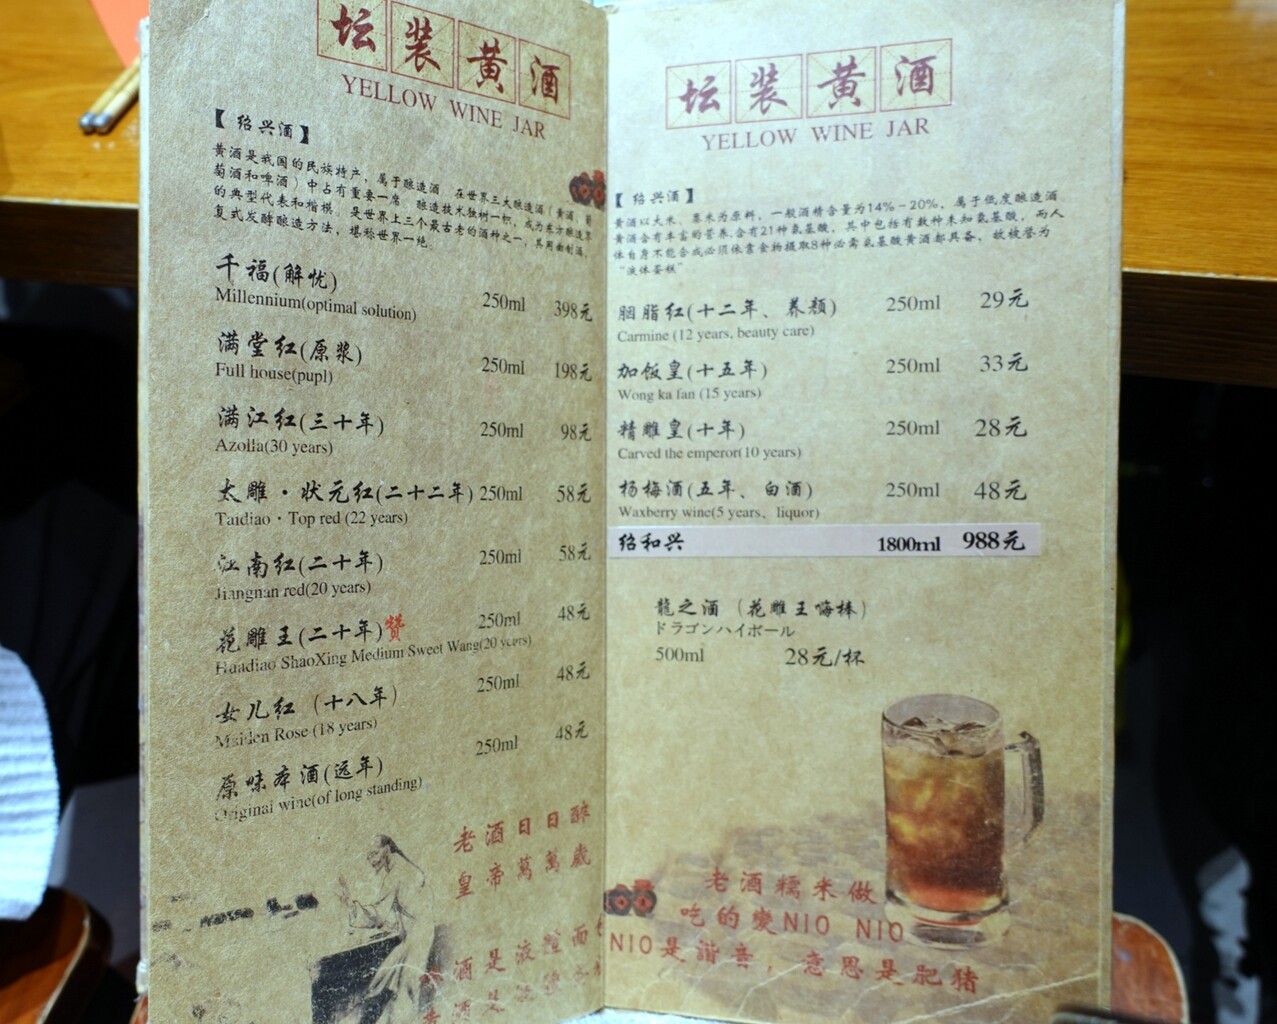 坛装黄酒
YELLOW WINE JAR
【绍兴酒】
黄酒是我国的民族特产，属于酿造酒，在世界三大酿造酒（黄酒、葡
萄酒和啤酒）中占有重要一席。酿造技术独树一帜，成为东方酿造界
的典型代表和楷模。是世界上三个最古老的酒种之一，其用曲制酒、
复式发酵酿造方法，堪称世界一绝。
千福(解忧) 250ml 398元
Millennium(optimal solution)
满堂红(原浆) 250ml 198元
Full house(pupl)
满江红(三十年) 250ml 98元
Azolla(30 years)
太雕·状元红(二十二年) 250ml 58元
Taidiao·Top red (22 years)
江南红(二十年) 250ml 58元
Jiangnan red(20 years)
花雕王(二十年)赞 250ml 48元
Huadiao ShaoXing Medium Sweet Wang(20 years)
女儿红（十八年） 250ml 48元
Maiden Rose (18 years)
原味本酒(远年) 250ml 48元
Original wine(of long standing)
老酒日日醉
皇帝萬萬歲
酒是液體
坛装黄酒
YELLOW WINE JAR
【绍兴酒】
黄酒以大米、黍米为原料，一般酒精含量为14%-20%，属于低度酿造酒
黄酒含有丰富的营养,含有21种氨基酸，其中包括有数种未知氨基酸，而人
体自身不能合成必须依靠食物摄取8种必需氨基酸黄酒都具备，故被誉为
“液体蛋糕”
胭脂红(十二年、养颜) 250ml 29元
Carmine (12 years, beauty care)
加饭皇(十五年) 250ml 33元
Wong ka fan (15 years)
精雕皇(十年) 250ml 28元
Carved the emperor(10 years)
杨梅酒(五年、白酒) 250ml 48元
Waxberry wine(5 years、liquor)
绍和兴 1800ml 988元
龍之酒（花雕王嗨棒）
ドラゴンハイボール
500ml 28元/杯
老酒糯米做
吃的變NIO NIO
NIO是諧音，意思是肥猪